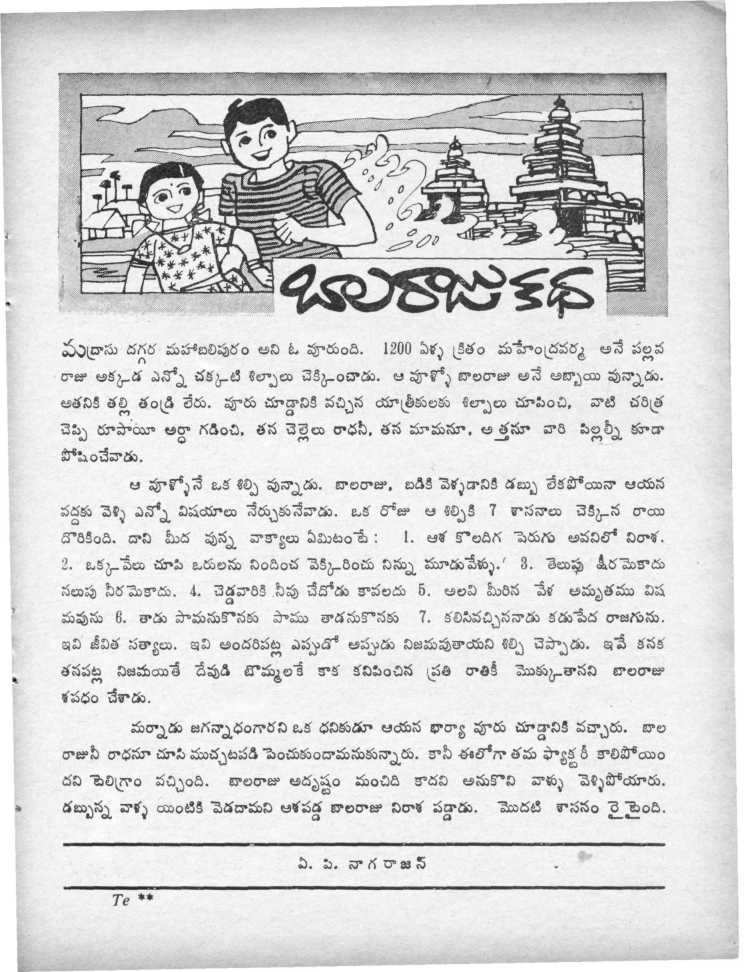 బాలరాజు కథ
మద్రాసు దగ్గర మహాబలిపురం అని ఓ వూరుంది. 1200 ఏళ్ళ క్రితం మహేంద్రవర్మ అనే పల్లవ
రాజు అక్కడ ఎన్నో చక్కటి శిల్పాలు చెక్కించాడు. ఆ వూళ్ళో బాలరాజు అనే అబ్బాయి వున్నాడు.
అతనికి తల్లి తండ్రి లేరు. వూరు చూడ్డానికి వచ్చిన యాత్రీకులకు శిల్పాలు చూపించి, వాటి చరిత్ర
చెప్పి రూపాయీ అర్ధా గడించి, తన చెల్లెలు రాధనీ, తన మామనూ, అత్తనూ వారి పిల్లల్నీ కూడా
పోషించేవాడు.
ఆ వూళ్ళోనే ఒక శిల్పి వున్నాడు. బాలరాజు, బడికి వెళ్ళడానికి డబ్బు లేకపోయినా ఆయన
వద్దకు వెళ్ళి ఎన్నో విషయాలు నేర్చుకునేవాడు. ఒక రోజు ఆ శిల్పికి 7 శాసనాలు చెక్కిన రాయి
దొరికింది. దాని మీద వున్న వాక్యాలు ఏమిటంటే : 1. ఆశ కొలదిగ పెరుగు అవనిలో నిరాశ.
2. ఒక్కవేలు చూపి ఒరులను నిందించ వెక్కిరించు నిన్ను మూడువేళ్ళు.' 3. తెలుపు క్షీరమెకాదు
నలుపు నీరమెకాదు. 4. చెడ్డవారికి నీవు చేదోడు కావలదు 5. అలవి మీరిన వేళ అమృతము విష
మవును 6. తాడు పామనుకొనకు పాము తాడనుకొనకు 7. కలిసివచ్చిననాడు కడుపేద రాజగును.
ఇవి జీవిత సత్యాలు. ఇవి అందరిపట్ల ఎప్పుడో అప్పుడు నిజమవుతాయని శిల్పి చెప్పాడు. ఇవే కనక
తనపట్ల నిజమయితే దేవుడి బొమ్మలకే కాక కనిపించిన ప్రతి రాతికీ మొక్కుతానని బాలరాజు
శపధం చేశాడు.
మర్నాడు జగన్నాధంగారని ఒక ధనికుడూ ఆయన భార్యా వూరు చూడ్డానికి వచ్చారు. బాల
రాజునీ రాధనూ చూసి ముచ్చటపడి పెంచుకుందామనుకున్నారు. కానీ ఈలోగా తమ ఫ్యాక్టరీ కాలిపోయిం
దని టెలిగ్రాం వచ్చింది. బాలరాజు అదృష్టం మంచిది కాదని అనుకొని వాళ్ళు వెళ్ళిపోయారు.
డబ్బున్న వాళ్ళ యింటికి వెడదామని ఆశపడ్డ బాలరాజు నిరాశ పడ్డాడు. మొదటి శాసనం రైటైంది.
ఏ. పి. నాగరాజన్
Te **